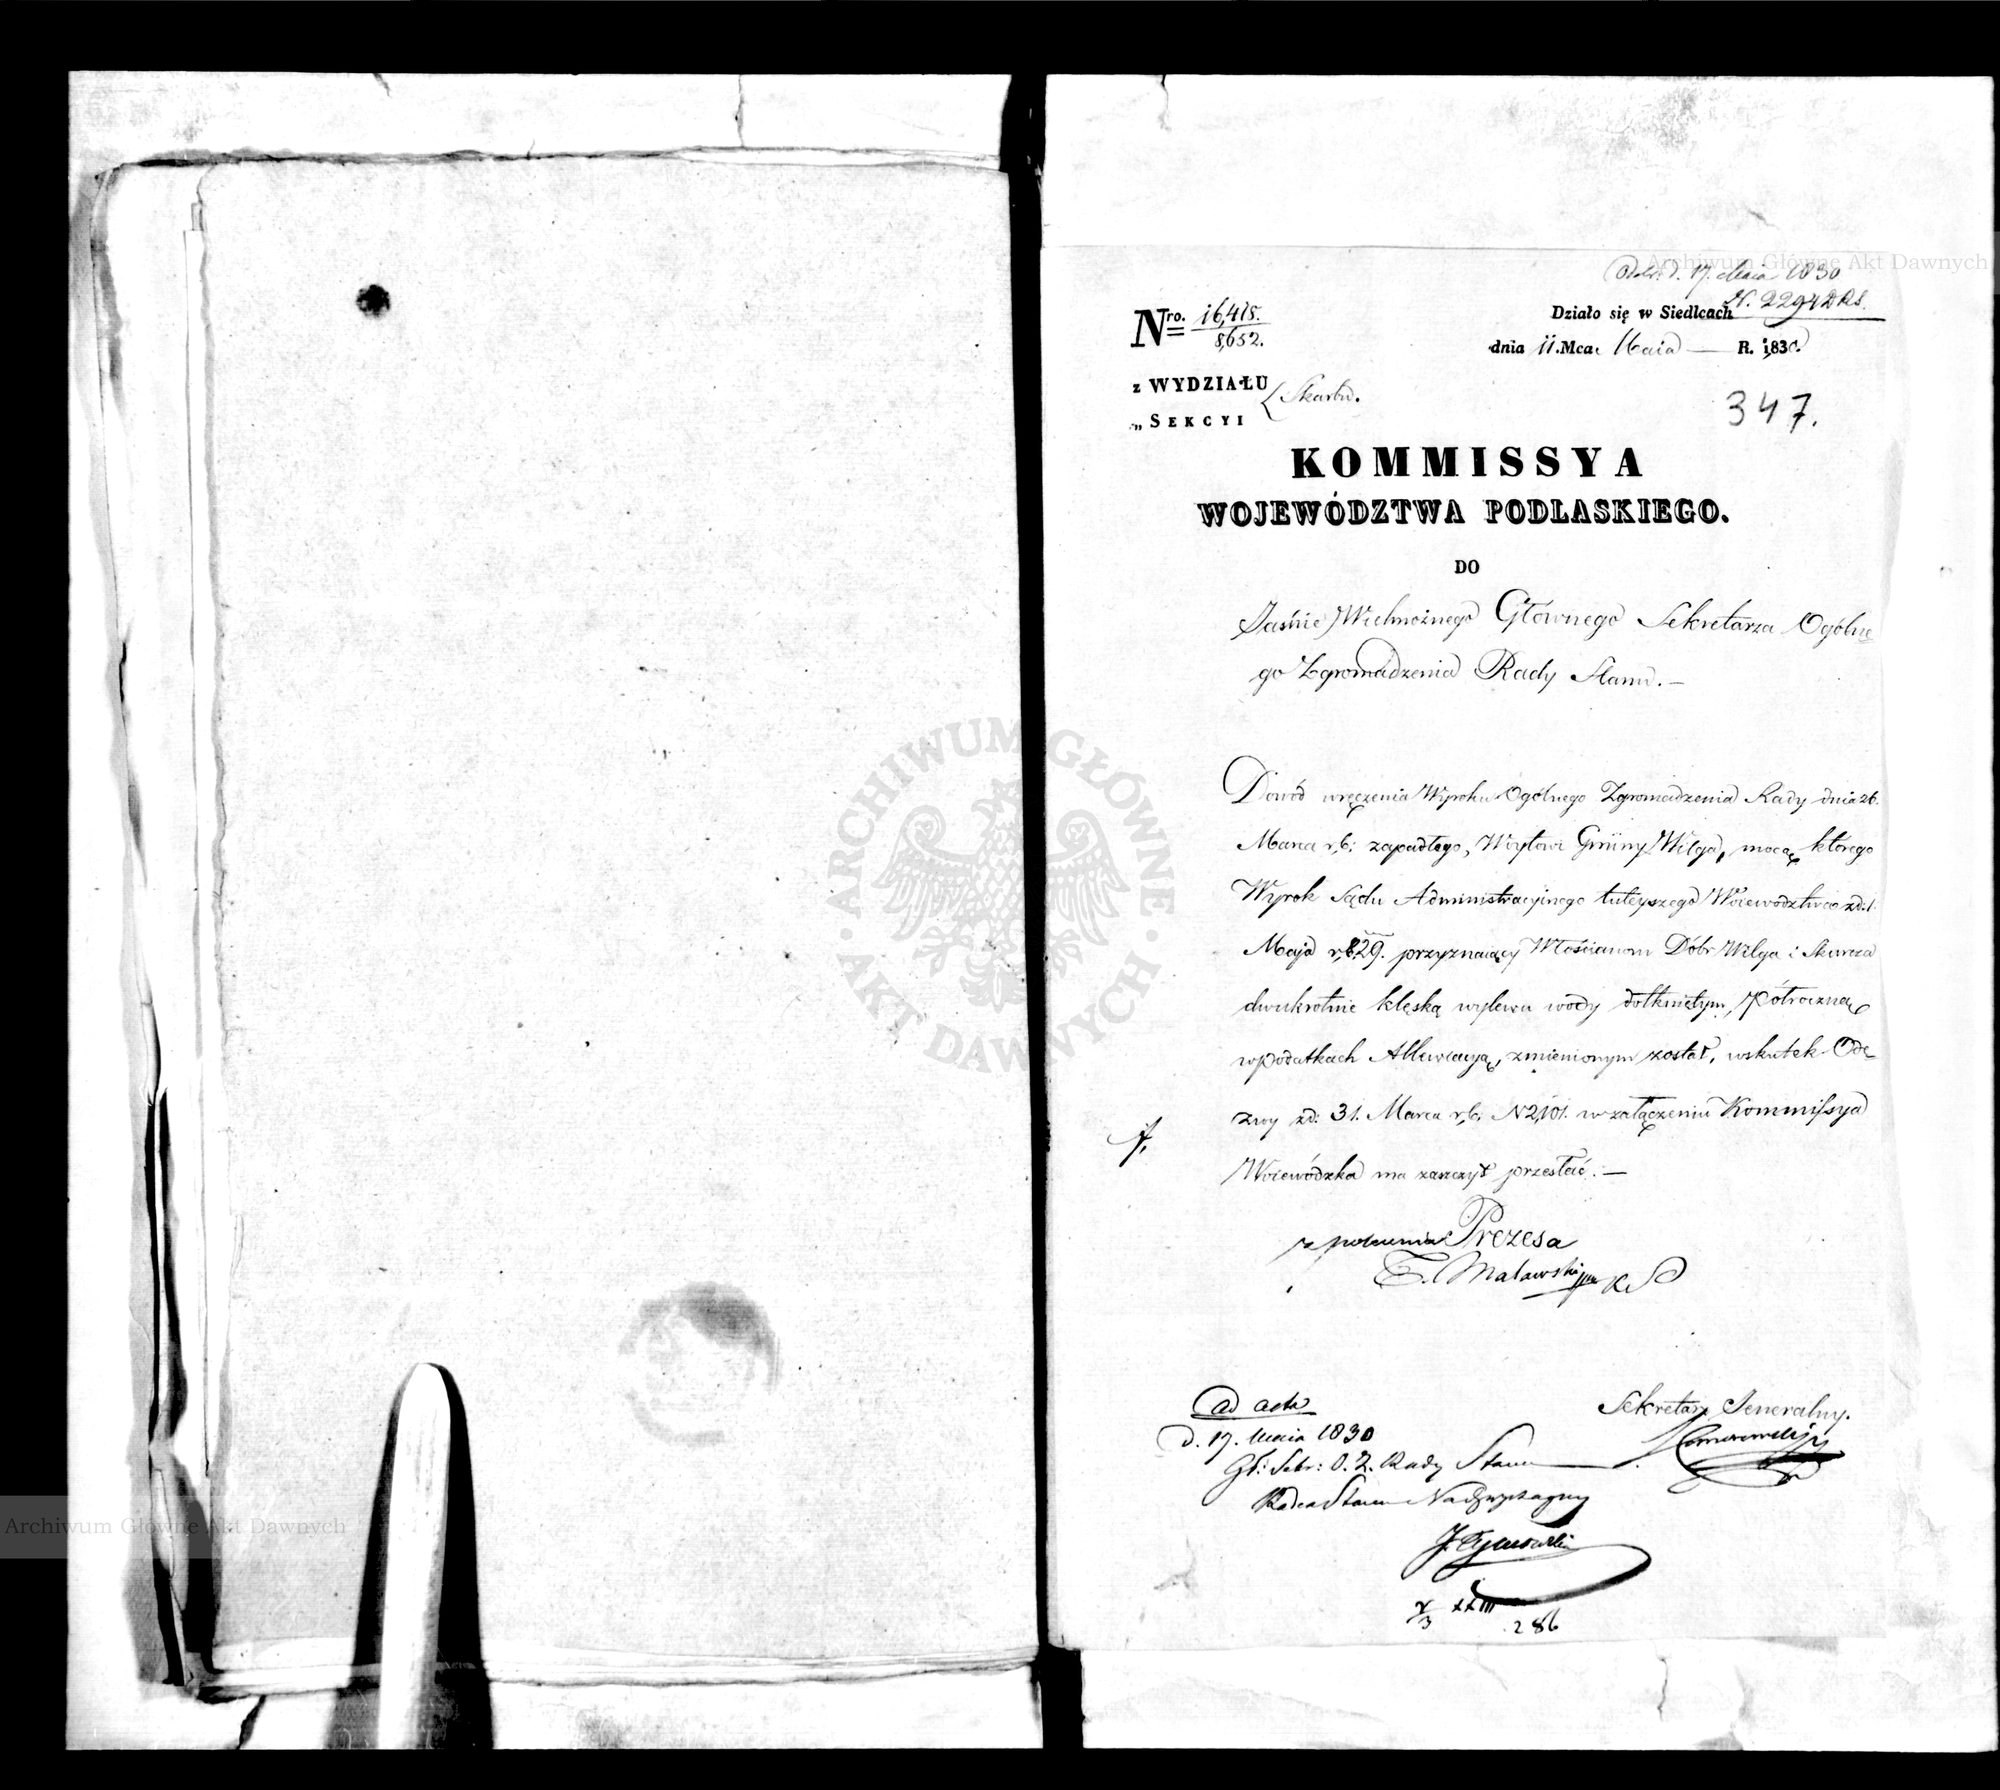 Odebr: d. 17. Maia 1830
N. 2294 DRS.
Nro. 16,415. / 8,652.
Działo się w Siedlcach
dnia 11. Mca Maia R. 1,830.
z WYDZIAŁU
„ SEKCYI
Skarbu.
347.
KOMMISSYA
WOJEWÓDZTWA PODLASKIEGO.
DO
Jaśnie Wielmożnego Głównego Sekretarza Ogólne
go Zgromadzenia Rady Stanu. —
Dowód wręczenia Wyroku Ogólnego Zgromadzenia Rady dnia 26.
Marca r,b: zapadłego, Woytowi Gminy Wilga, mocą którego
Wyrok Sądu Administracyinego tuteyszego Woiewodztwa z d: 1.
Maja r, 829. przyznaiący Włościanom Dóbr Wilga i Skurcza
dwukrotnie klęską wylewu wody dotkniętym, półroczną
w podatkach Allewiacyą, zmienionym został, wskutek Ode
zwy z d: 31. Marca r,b. N 2,101. w załączeniu Kommissya
Woiewódzka ma zaszczyt przesłać. —
z polecenia Prezesa
T. Malawski
ad acta
d. 17. Maia 1830
Gł: Sekr: O. Z. Rady Stanu
Radca Stanu Nadzwyczayny
Sekretarz Jeneralny.
286
ARCHIWUM GŁÓWNE · AKT DAWNYCH ·
Archiwum Główne Akt Dawnych
Archiwum Główne Akt Dawnych